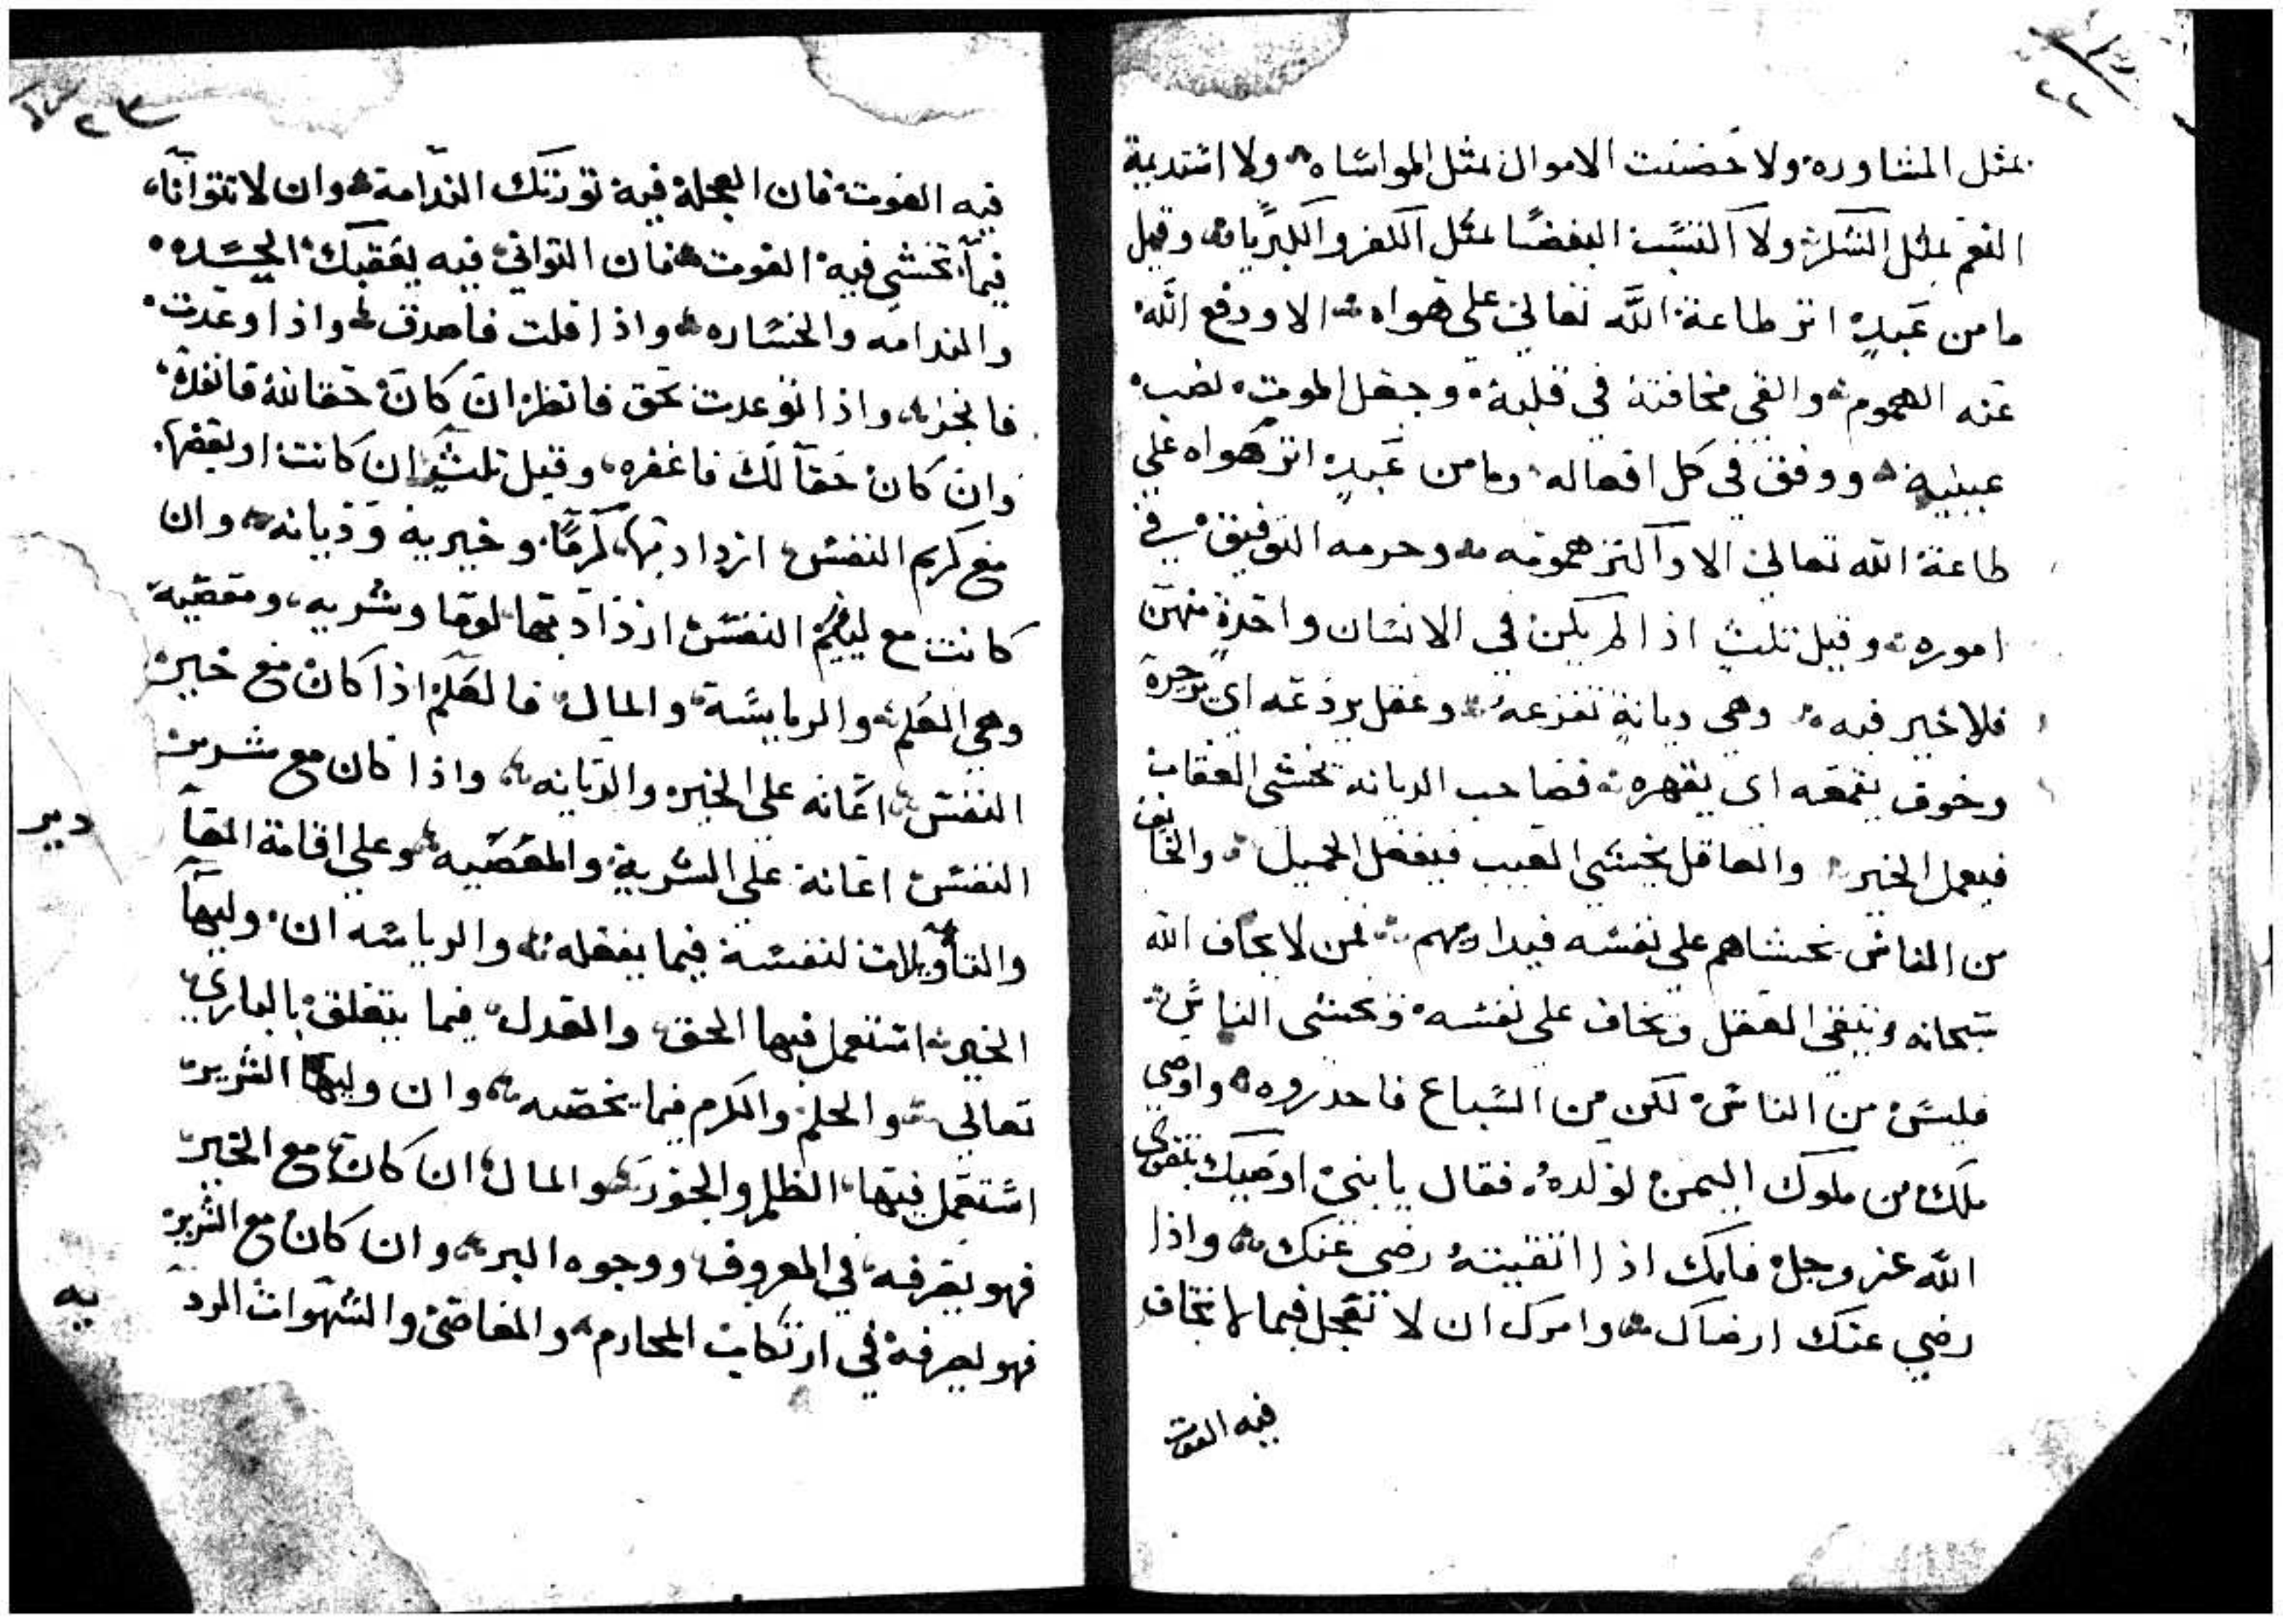 ٢٢
بمثل المشاوره ولا حصنت الاموال بمثل المواساه ولا استديمة
النعم بمثل الشكر ولا اكتسب البغضا بمثل الكفر والكبريا وقيل
ما من عبدٍ اثر طاعة الله تعالي علي هواه الا ودفع الله
عنه الهموم والقي مخافته في قلبه وجعل الموت نصب
عينيه ووفق في كل افعاله وما من عبدٍ اثر هواه علي
طاعة الله تعالي الا واكثر همومه وحرمه التوفيق في
اموره وقيل ثلث اذا لم يكن في الانسان واحدة منهن
فلا خير فيه وهي ديانةٍ تفزعه وعقل يردعه اي يزجره
وخوف يقمعه اي يقهره فصاحب الديانه يخشي العقاب
فيعمل الخير والعاقل يخشي العيب فيفعل الجميل والخايف
من الناس يخشاهم علي نفسه فيداريهم فمن لا يخاف الله
سبحانه وينفي العقل ويخاف علي نفسه ويخشي الناس
فليس من الناس لكن من السباع فاحذروه واوصي
ملك من ملوك اليمن لولده فقال يا بني اوصيك بتقوي
الله عز وجل فانك اذا اتقيته رضي عنك واذا
رضي عنك ارضاك وامرك ان لا تعجل فيما لا تخاف
فيه الفوت
٢٣
فيه الفوت فان العجلة فيه تورثك الندامة وان لا تتوانا
فيما تخشي فيه الفوت فان التواني فيه يعقبك الحسره
والندامه والخساره واذا قلت فاصدق واذا وعدت
فانجز واذا توعدت بحق فانظر ان كان حقا لله فانفذه
وان كان حقا لك فاغفره وقيل ثلث ان كانت او بعضها
مع كريم النفس ازداد بها كرمًا وخيرية وديانه وان
كانت مع ليئيم النفس ازداد بها لوما وشريه ومعصية
وهي العلم والريايسة والمال فالعلم اذا كان مع خير
النفس اعانه علي الخير والديانه واذا كان مع شرير
النفس اعانة علي الشرية والمعصيه وعلي اقامة المعا
دير
والتأويلات لنفسة فيما يفعله والرياسه ان وليها
الخير استعمل فيها الحق والعدل فيما يتعلق بالباري
تعالي والحلم والكرم فيما يخصه وان وليها الشرير
استعمل فيها الظلم والجور والمال ان كان مع الخير
فهو يصرفه في المعروف ووجوه البر وان كان مع الشرير
فهو يصرفة في ارتكاب المحارم والمعاصي والشهوات الرد
يه